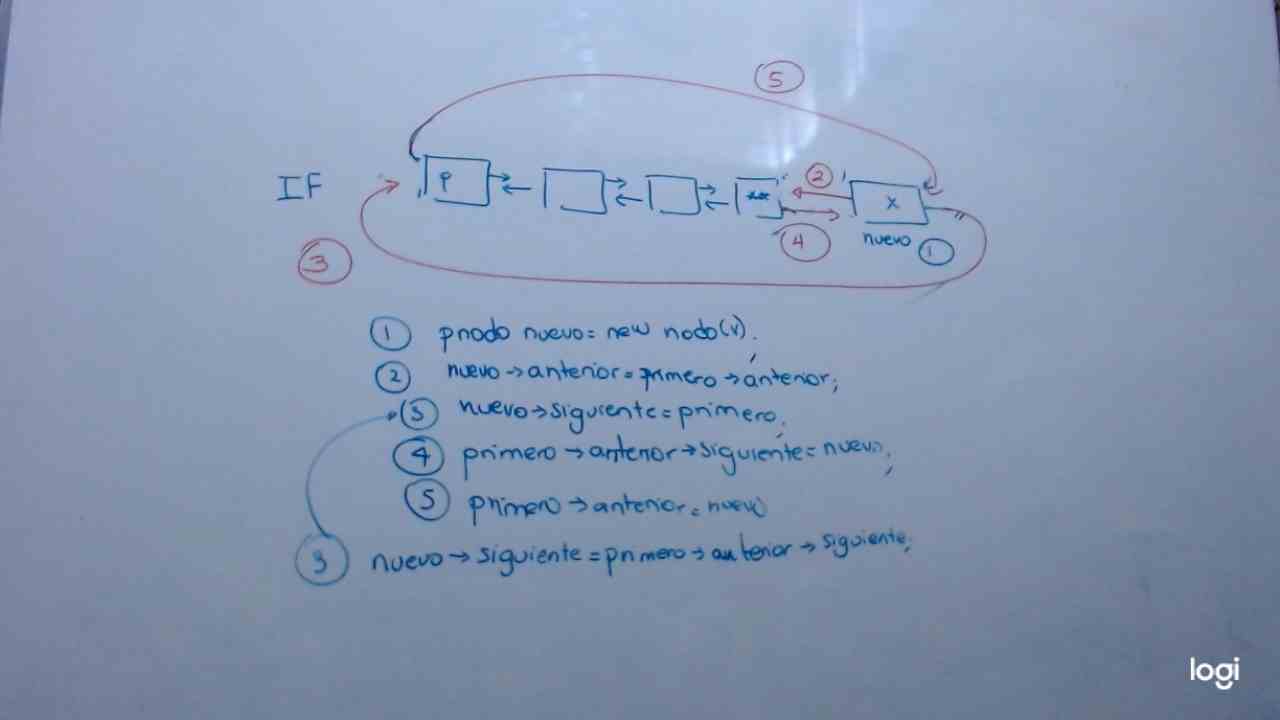 5
IF
P
2
x
3
4
nuevo 1
1 pnodo nuevo = new nodo(v);
2 nuevo→anterior = primero→anterior;
3 nuevo→siguiente = primero;
4 primero→anterior→siguiente = nuevo;
5 primero→anterior = nuevo
3 nuevo→siguiente = primero→anterior→siguiente;
logi